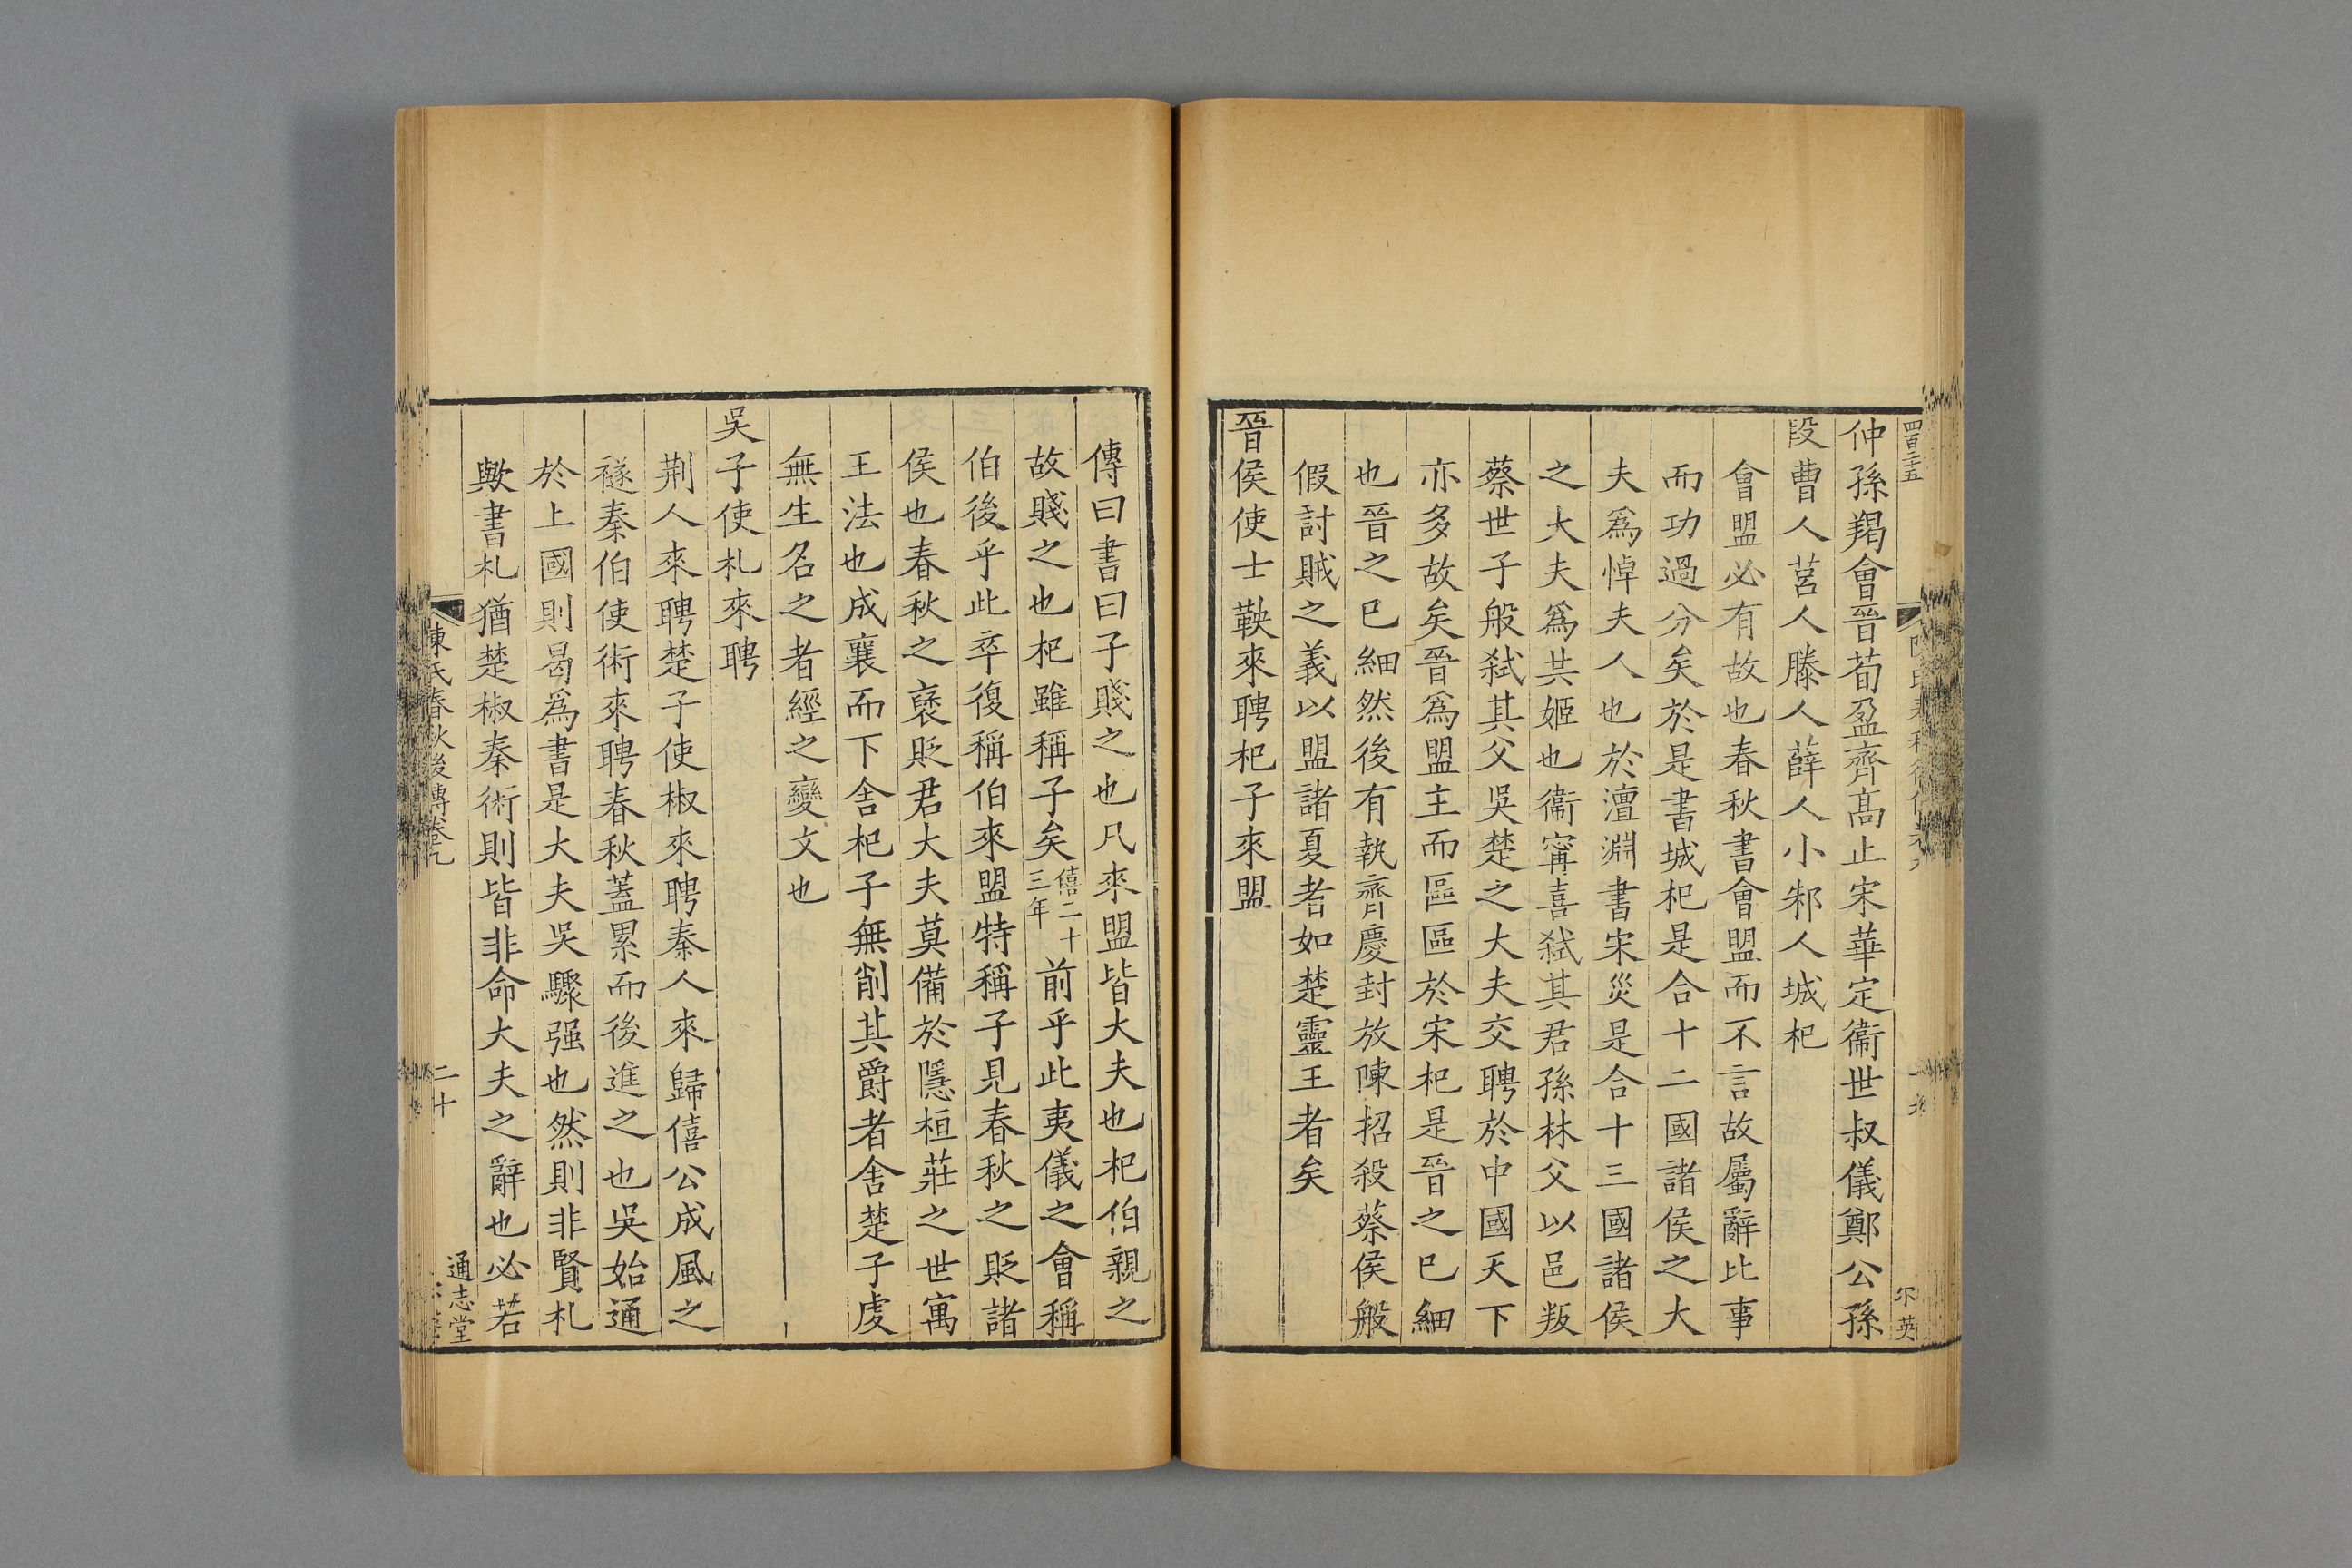 四百三十五
仲孫羯會晉荀盈齊高止宋華定衞世叔儀鄭公孫
段曹人莒人滕人薛人小邾人城杞
會盟必有故也春秋書會盟而不言故屬辭比事
而功過分矣於是書城杞是合十二國諸侯之大
夫爲悼夫人也於澶淵書宋災是合十三國諸侯
之大夫爲共姬也衞甯喜弑其君孫林父以邑叛
蔡世子般弑其父吳楚之大夫交聘於中國天下
亦多故矣晉爲盟主而區區於宋杞是晉之已細
也晉之已細然後有執齊慶封放陳招殺蔡侯般
假討賊之義以盟諸夏者如楚靈王者矣
晉侯使士鞅來聘杞子來盟
傳曰書曰子賤之也凡來盟皆大夫也杞伯親之
故賤之也杞雖稱子矣僖二十三年前乎此夷儀之會稱
伯後乎此卒復稱伯來盟特稱子見春秋之貶諸
侯也春秋之褒貶君大夫莫備於隱桓莊之世寓
王法也成襄而下舍杞子無削其爵者舍楚子虔
無生名之者經之變文也
吳子使札來聘
荆人來聘楚子使椒來聘秦人來歸僖公成風之
襚秦伯使術來聘春秋蓋累而後進之也吳始通
於上國則曷爲書是大夫吳驟强也然則非賢札
歟書札猶楚椒秦術則皆非命大夫之辭也必若
陳氏春秋後傳卷九
二十
通志堂